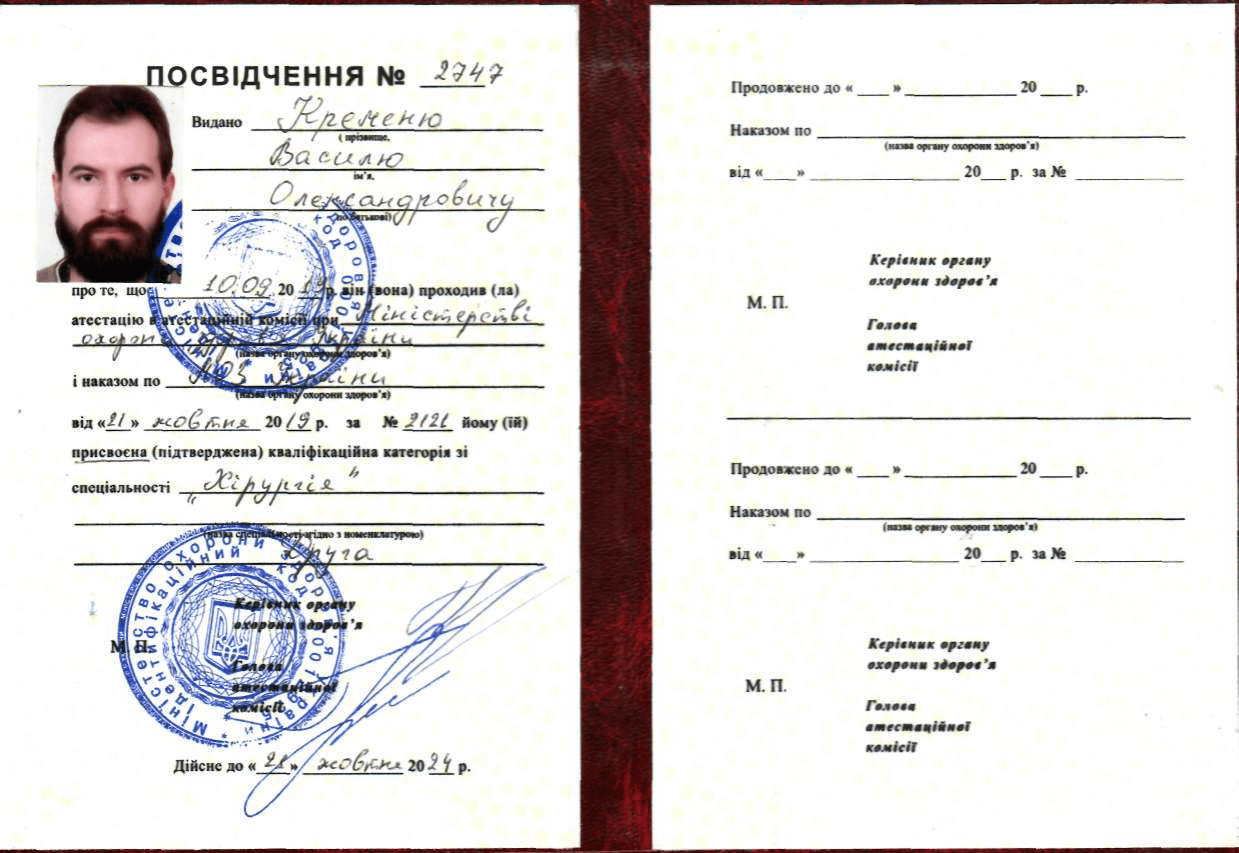 ПОСВІДЧЕННЯ № 2747
Видано Кременю
( прізвище,
Василю
ім'я,
Олександровичу
по батькові)
про те, що 10.09 2019 р. він (вона) проходив (ла)
атестацію в атестаційній комісії при Міністерстві
охорони здоров'я України
(назва органу охорони здоров'я)
і наказом по МОЗ України
(назва органу охорони здоров'я)
від «21» жовтня 2019 р. за № 2121 йому (їй)
присвоєна (підтверджена) кваліфікаційна категорія зі
спеціальності „Хірургія"
(назва спеціальності згідно з номенклатурою)
Друга
Керівник органу
охорони здоров'я
М. П.
Голова
атестаційної
комісії
Міністерство охорони здоров'я України
Ідентифікаційний код
Дійсне до «21» жовтня 2024 р.
Продовжено до « ____ » ______________ 20 ____ р.
Наказом по
(назва органу охорони здоров'я)
від «____» ___________________ 20___ р. за № ______________
Керівник органу
охорони здоров'я
М. П.
Голова
атестаційної
комісії
Продовжено до « ____ » ______________ 20 ____ р.
Наказом по
(назва органу охорони здоров'я)
від «____» ___________________ 20___ р. за № ______________
Керівник органу
охорони здоров'я
М. П.
Голова
атестаційної
комісії